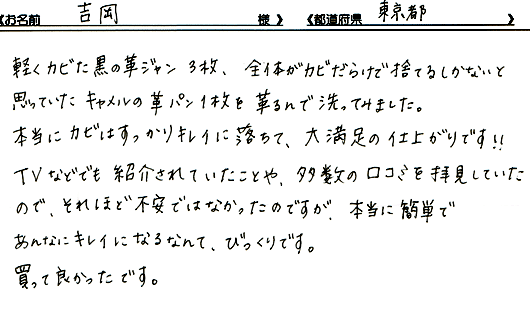 《お名前 吉岡 様 》 《都道府県 東京都 》
軽くカビた黒の革ジャン 3枚、 全体がカビだらけで捨てるしかないと
思っていた キャメルの革パン1枚を 革るんで洗ってみました。
本当に カビはすっかりキレイに落ちて、大満足の仕上がりです!!
TVなどでも 紹介されていたことや、多数の口コミを拝見していた
ので、それほど不安ではなかったのですが、本当に簡単で
あんなにキレイになるなんて、びっくりです。
買って良かったです。